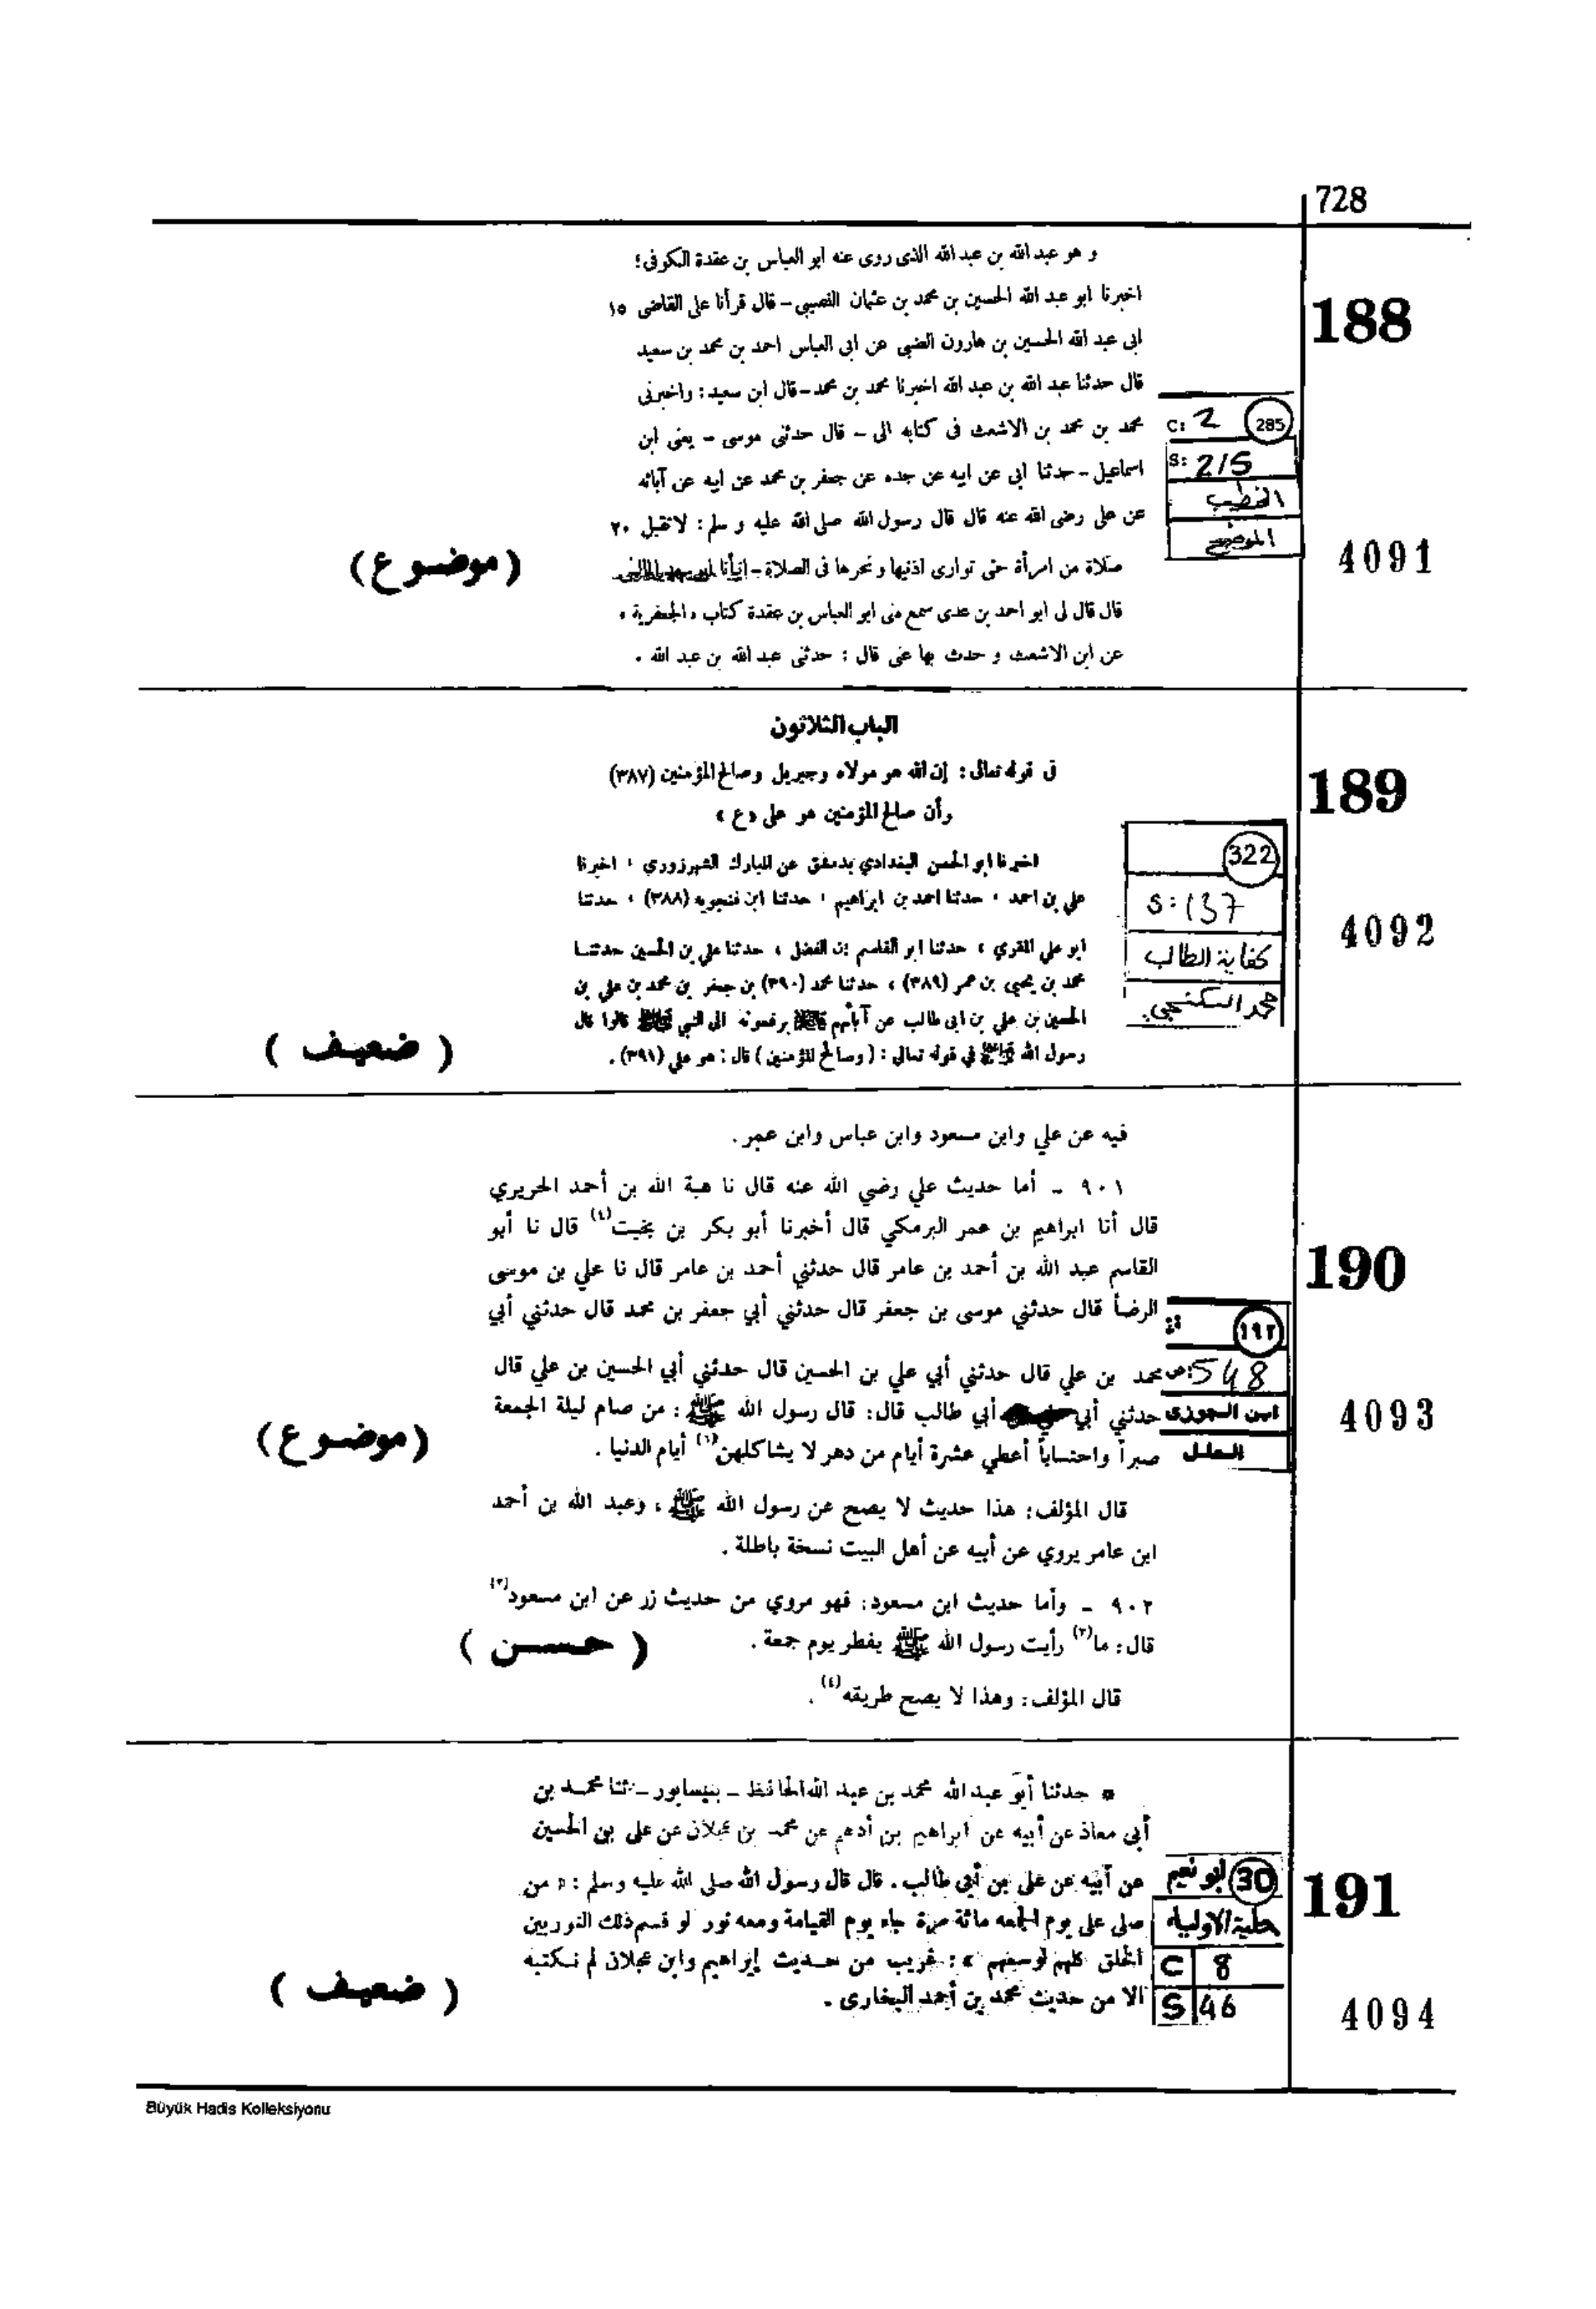 728
و هو عبد الله بن عبد الله الذى روى عنه ابو العباس بن عقدة الكوفى؛
اخبرنا ابو عبد الله الحسين بن محمد بن عثمان النصيبى – قال قرأنا على القاضى ١٥
188
ابى عبد الله الحسين بن هارون الضبى عن ابى العباس احمد بن محمد بن سعيد
قال حدثنا عبد الله بن عبد الله اخبرنا محمد بن محمد – قال ابن سعيد: واخبرنى
محمد بن محمد بن الاشعث فى كتابه الى – قال حدثنى موسى – يعنى ابن
C: 2 285
اسماعيل – حدثنا ابى عن ابيه عن جده عن جعفر بن محمد عن ابيه عن آبائه
S: 215
الخطيب
عن على رضى الله عنه قال قال رسول الله صلى الله عليه و سلم: لا تقبل ٢٠
الموضح
صلاة من امرأة حتى توارى اذنيها و نحرها فى الصلاة – انبأنا
(موضوع)
4091
قال قال لى ابو احمد بن عدى سمع منى ابو العباس بن عقدة كتاب «الجعفرية»
عن ابن الاشعث و حدث بها عنى قال: حدثنى عبد الله بن عبد الله .
الباب الثلاثون
فى قوله تعالى: إن الله هو مولاه وجبريل وصالح المؤمنين (٣٨٧)
189
وأن صالح المؤمنين هو على «ع»
اخبرنا ابو الحسن البغدادي بدمشق عن المبارك الشهرزوري ، اخبرنا
322
علي بن احمد ، حدثنا احمد بن ابراهيم ، حدثنا ابن فنجويه (٣٨٨) ، حدثنا
S: 137
4092
ابو علي المقري ، حدثنا ابو القاسم بن الفضل ، حدثنا علي بن الحسين حدثنا
كفاية الطالب
محمد بن يحيى بن عمر (٣٨٩) ، حدثنا محمد (٣٩٠) بن جعفر بن محمد بن علي بن
محمد الكنجي
الحسين بن علي بن ابى طالب عن آبائهم يرفعونه الى النبي ﷺ قالوا قال
رسول الله ﷺ في قوله تعالى: (وصالح المؤمنين) قال: هو علي (٣٩١) .
( ضعيف )
فيه عن علي وابن مسعود وابن عباس وابن عمر .
٩٠١ - أما حديث علي رضي الله عنه قال نا هبة الله بن أحمد الحريري
قال أنا ابراهيم بن عمر البرمكي قال أخبرنا أبو بكر بن بخيت(٤) قال نا أبو
القاسم عبد الله بن أحمد بن عامر قال حدثني أحمد بن عامر قال نا علي بن موسى
190
الرضا قال حدثني موسى بن جعفر قال حدثني أبي جعفر بن محمد قال حدثني أبي
١٩٢
محمد بن علي قال حدثني أبي علي بن الحسين قال حدثني أبي الحسين بن علي قال
ص: 548
حدثني أبي أبي طالب قال: قال رسول الله ﷺ: من صام ليلة الجمعة
ابن الجوزى
4093
صبراً واحتساباً أعطي عشرة أيام من دهر لا يشاكلهن(١) أيام الدنيا .
العلل
(موضوع)
قال المؤلف: هذا حديث لا يصح عن رسول الله ﷺ، وعبد الله بن أحمد
ابن عامر يروي عن أبيه عن أهل البيت نسخة باطلة .
٩٠٢ - وأما حديث ابن مسعود: فهو مروي من حديث زر عن ابن مسعود(٢)
قال: ما(٣) رأيت رسول الله ﷺ يفطر يوم جمعة .
( حسن )
قال المؤلف: وهذا لا يصح طريقه(٤) .
* حدثنا أبو عبد الله محمد بن عبد الله الحافظ – بنيسابور – ثنا محمد بن
أبى معاذ عن أبيه عن ابراهيم بن أدهم عن محمد بن عجلان عن على بن الحسين
عن أبيه عن على بن أبى طالب . قال قال رسول الله صلى الله عليه وسلم: « من
30 ابو نعيم
191
صلى على يوم الجمعه مائة مرة جاء يوم القيامة ومعه نور لو قسم ذلك النور بين
حلية الاولياء
الخلق كلهم لوسعهم »: غريب من حديث إبراهيم وابن عجلان لم نكتبه
C 8
الا من حديث محمد بن أحمد البخارى .
S 46
( ضعيف )
4094
Büyük Hadis Kolleksiyonu